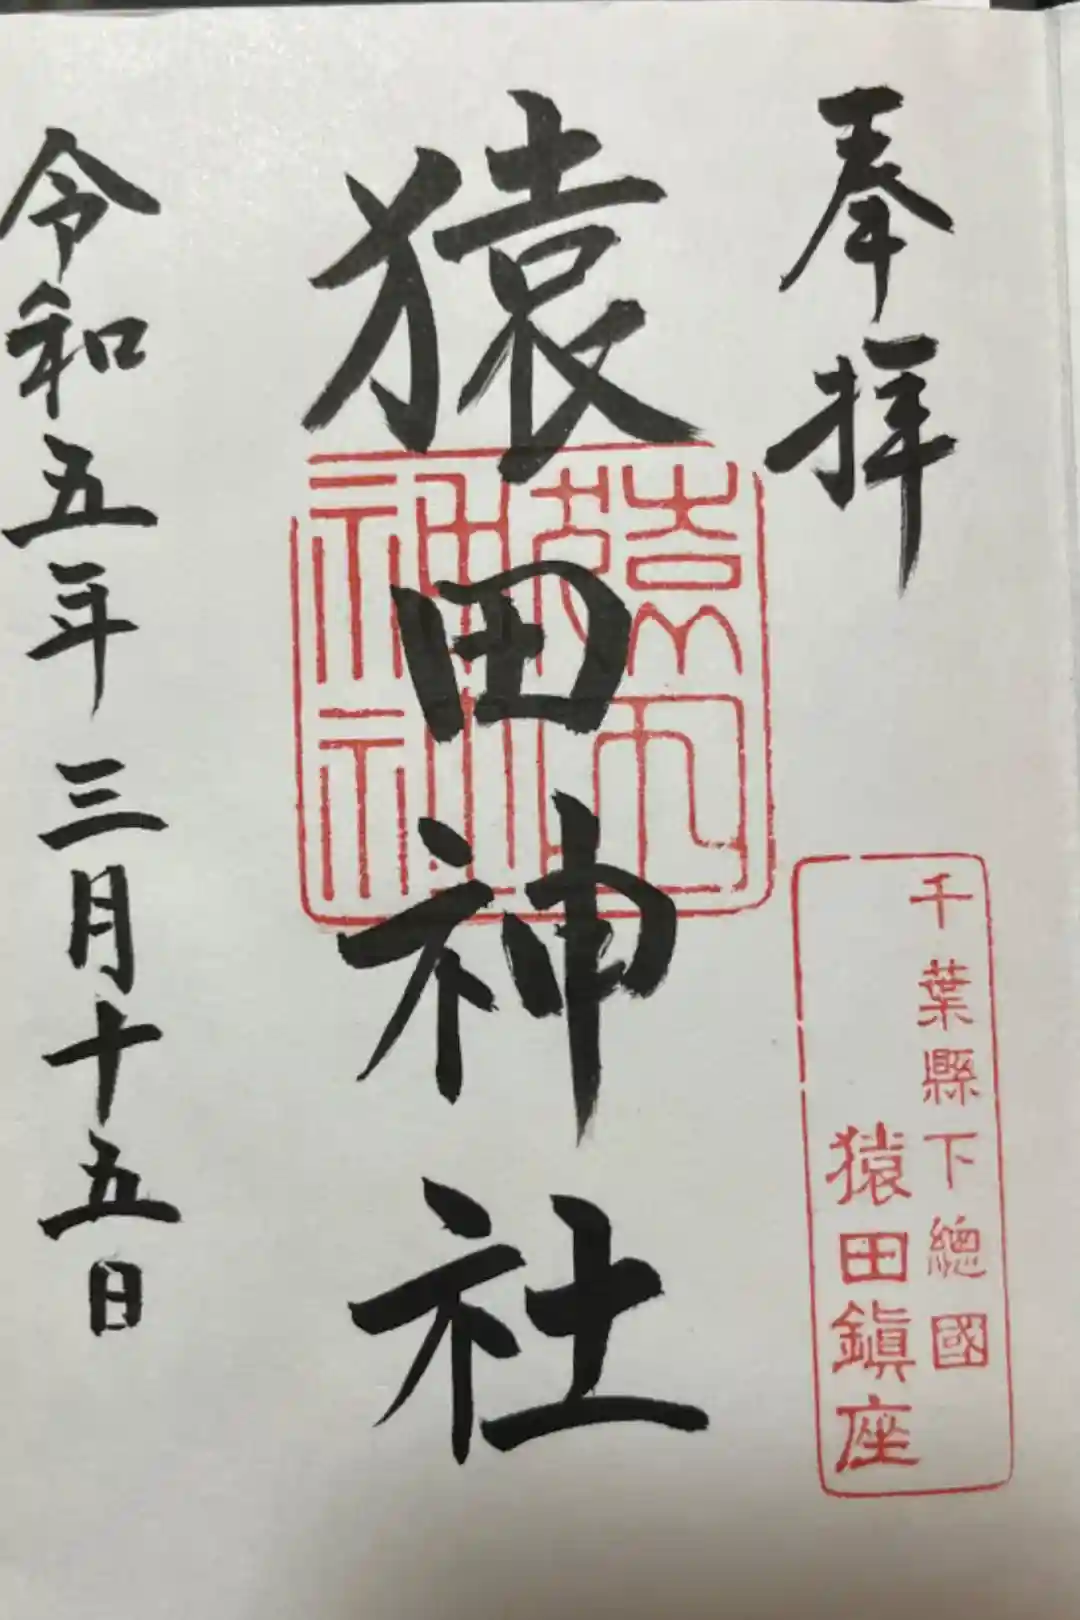 奉拝
千葉縣下總國
猿田鎭座
猿田神社
猿田
神社
令和五年三月十五日